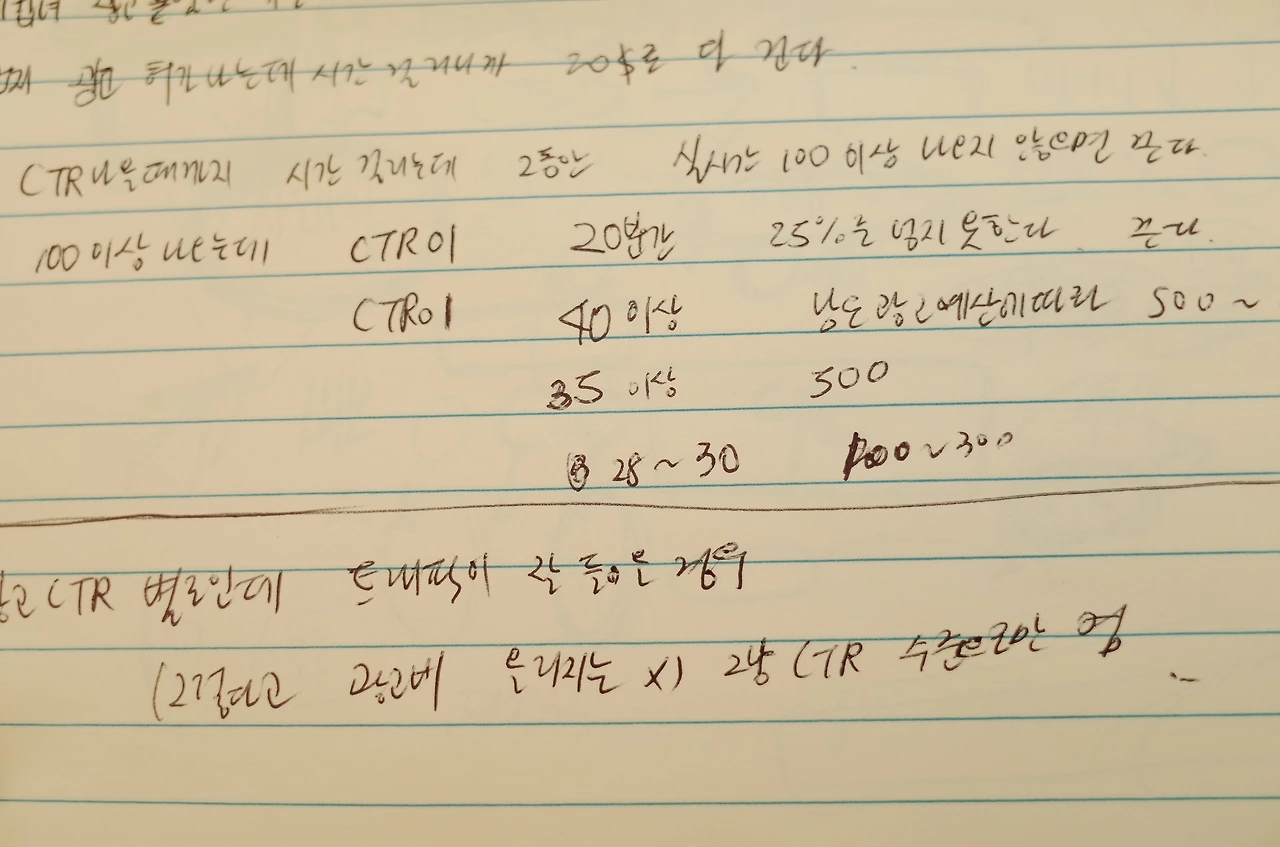 광고 허가 나는데 시간 걸리니까 20$로 다 건다.
CTR 나올때까지 시간 걸리는데 2동안 실시간 100 이상 나오지 않으면 끈다.
100 이상 나오는데 CTR이 20분간 25%를 넘지 못한다. 끈다.
CTR이 40 이상 남은 광고예산에따라 500 ~
35 이상 500
28 ~ 30 ~ 300
CTR 별로인데 트래픽이 잘 들어오는 경우
(그렇다고 광고비 올리지는 X) 그냥 CTR 수준으로만